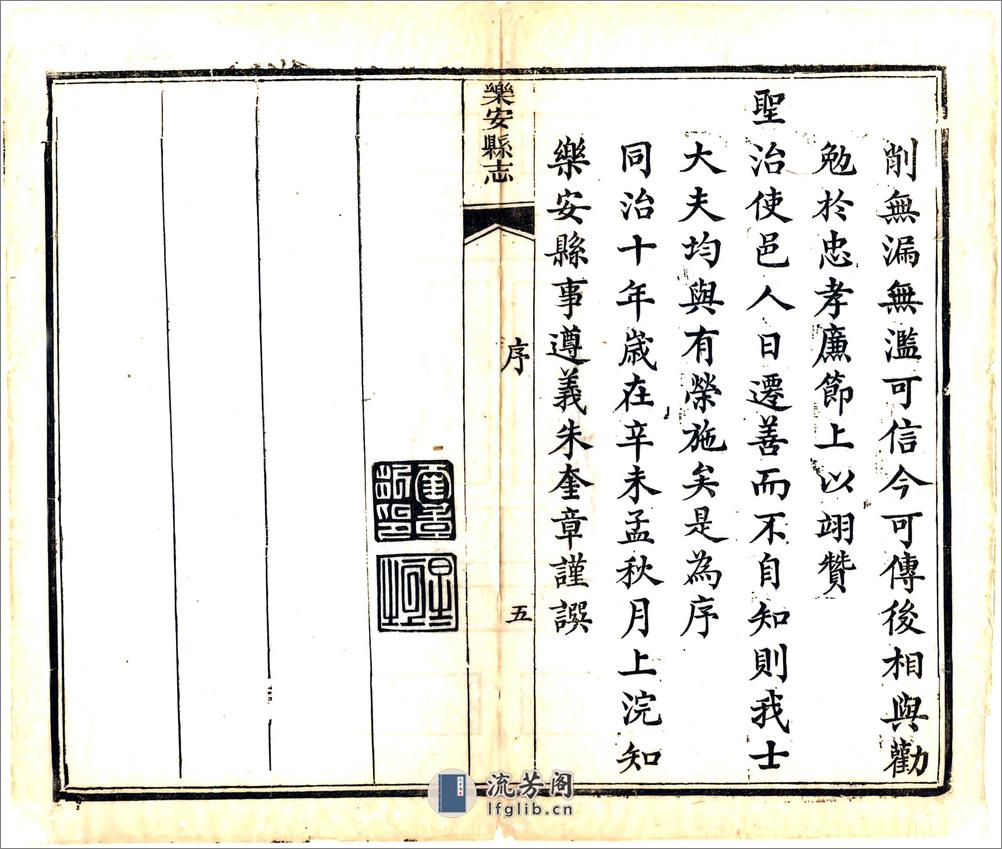 削無漏無濫可信今可傳後相與勸
勉於忠孝廉節上以翊贊
聖治使邑人日遷善而不自知則我士
大夫均與有榮施矣是為序
同治十年歲在辛未孟秋月上浣知
樂安縣事遵義朱奎章謹譔
樂安縣志
序
五
流芳阁
lfglib.cn